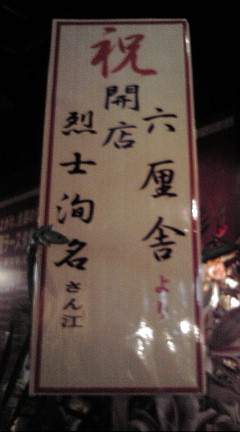 祝
開店
六厘舎より
烈士洵名さん江